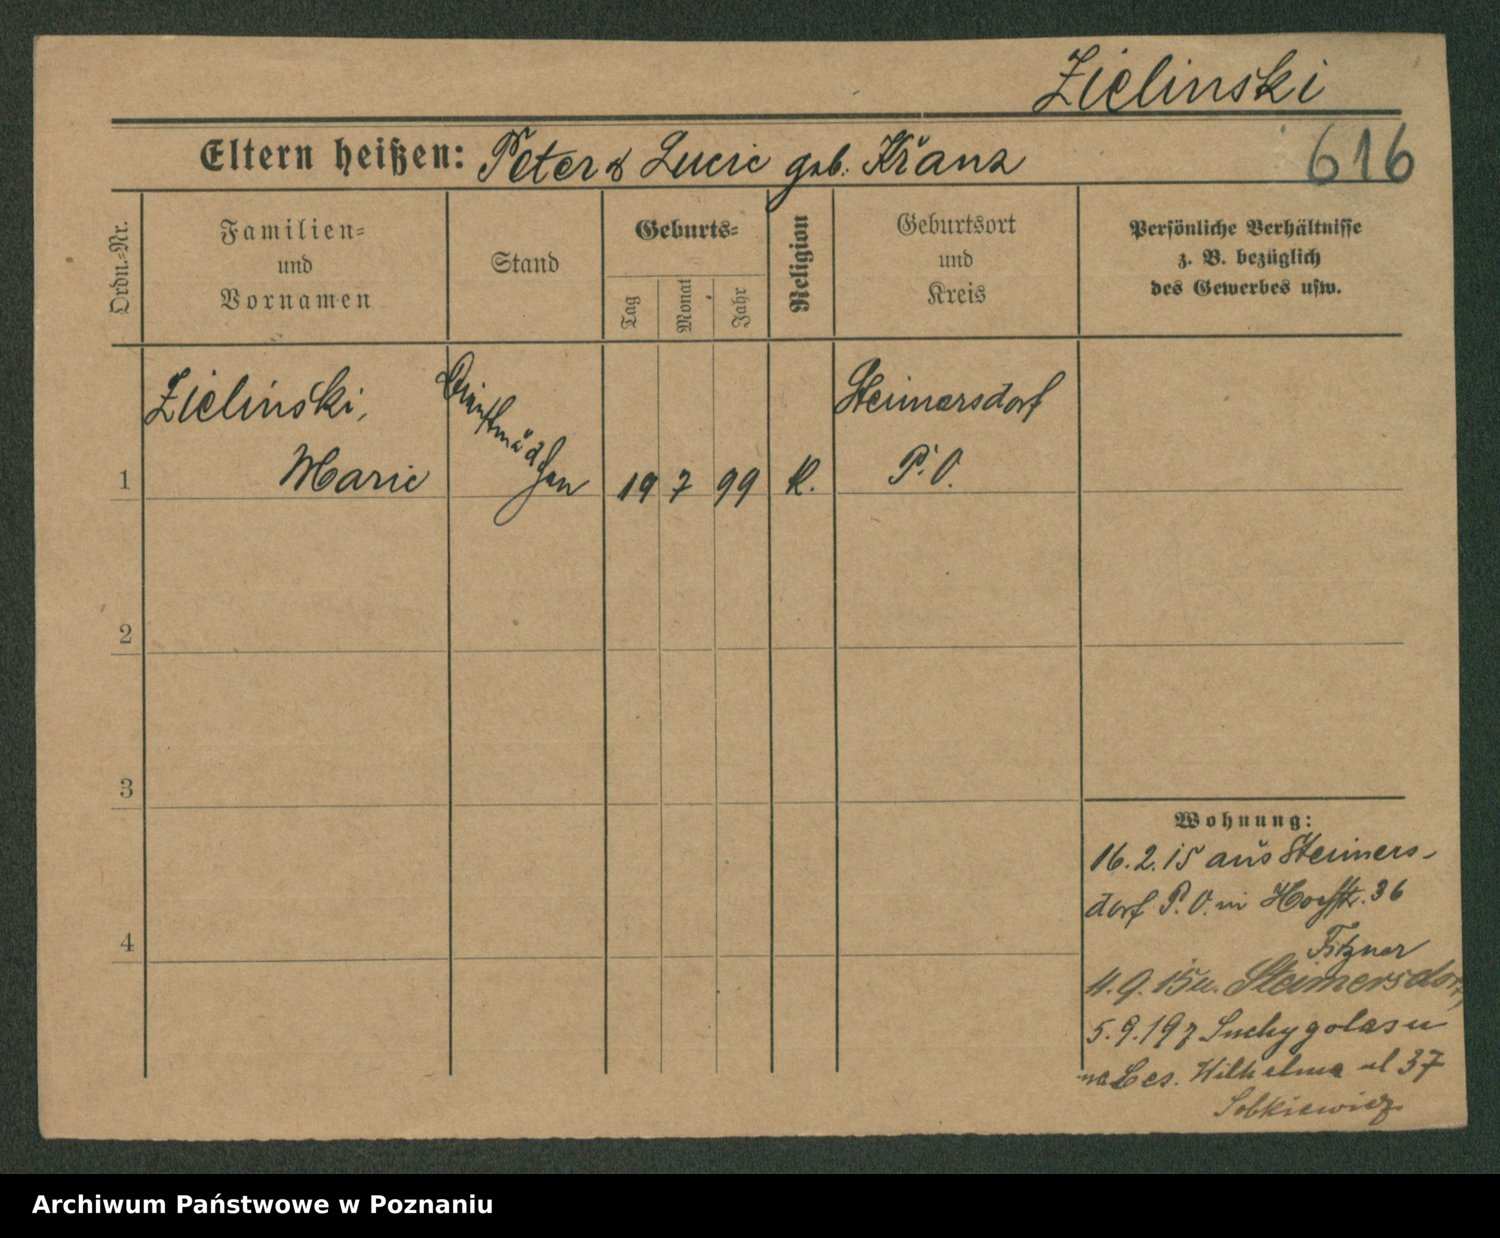 Zielinski
616
Eltern heißen: Peter & Lucie geb. Kranz
Ordn.-Nr.
Familien-
und
Vornamen
Stand
Geburts-
Tag
Monat
Jahr
Religion
Geburtsort
und
Kreis
Persönliche Verhältnisse
z. B. bezüglich
des Gewerbes usw.
Zielinski,
Marie
Dienstmädchen
1
19 7 99 K.
Steimersdorf
P. O.
2
3
4
Wohnung:
16.2.15 aus Steimers-
dorf P. O. in 36
Fitzner
4.9.15 n. Steimersdorf
5.9.19 z Suchy golasu
na Ces. Wilhelma ul 37
Sobkiewicz
Archiwum Państwowe w Poznaniu